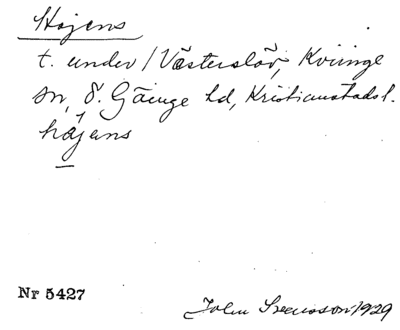 Höjens
t. under / Västerslöv, Kviinge
sn, Ö. Göinge hd, Kristianstads l.
håjens
Nr 5427
John Svensson 1929